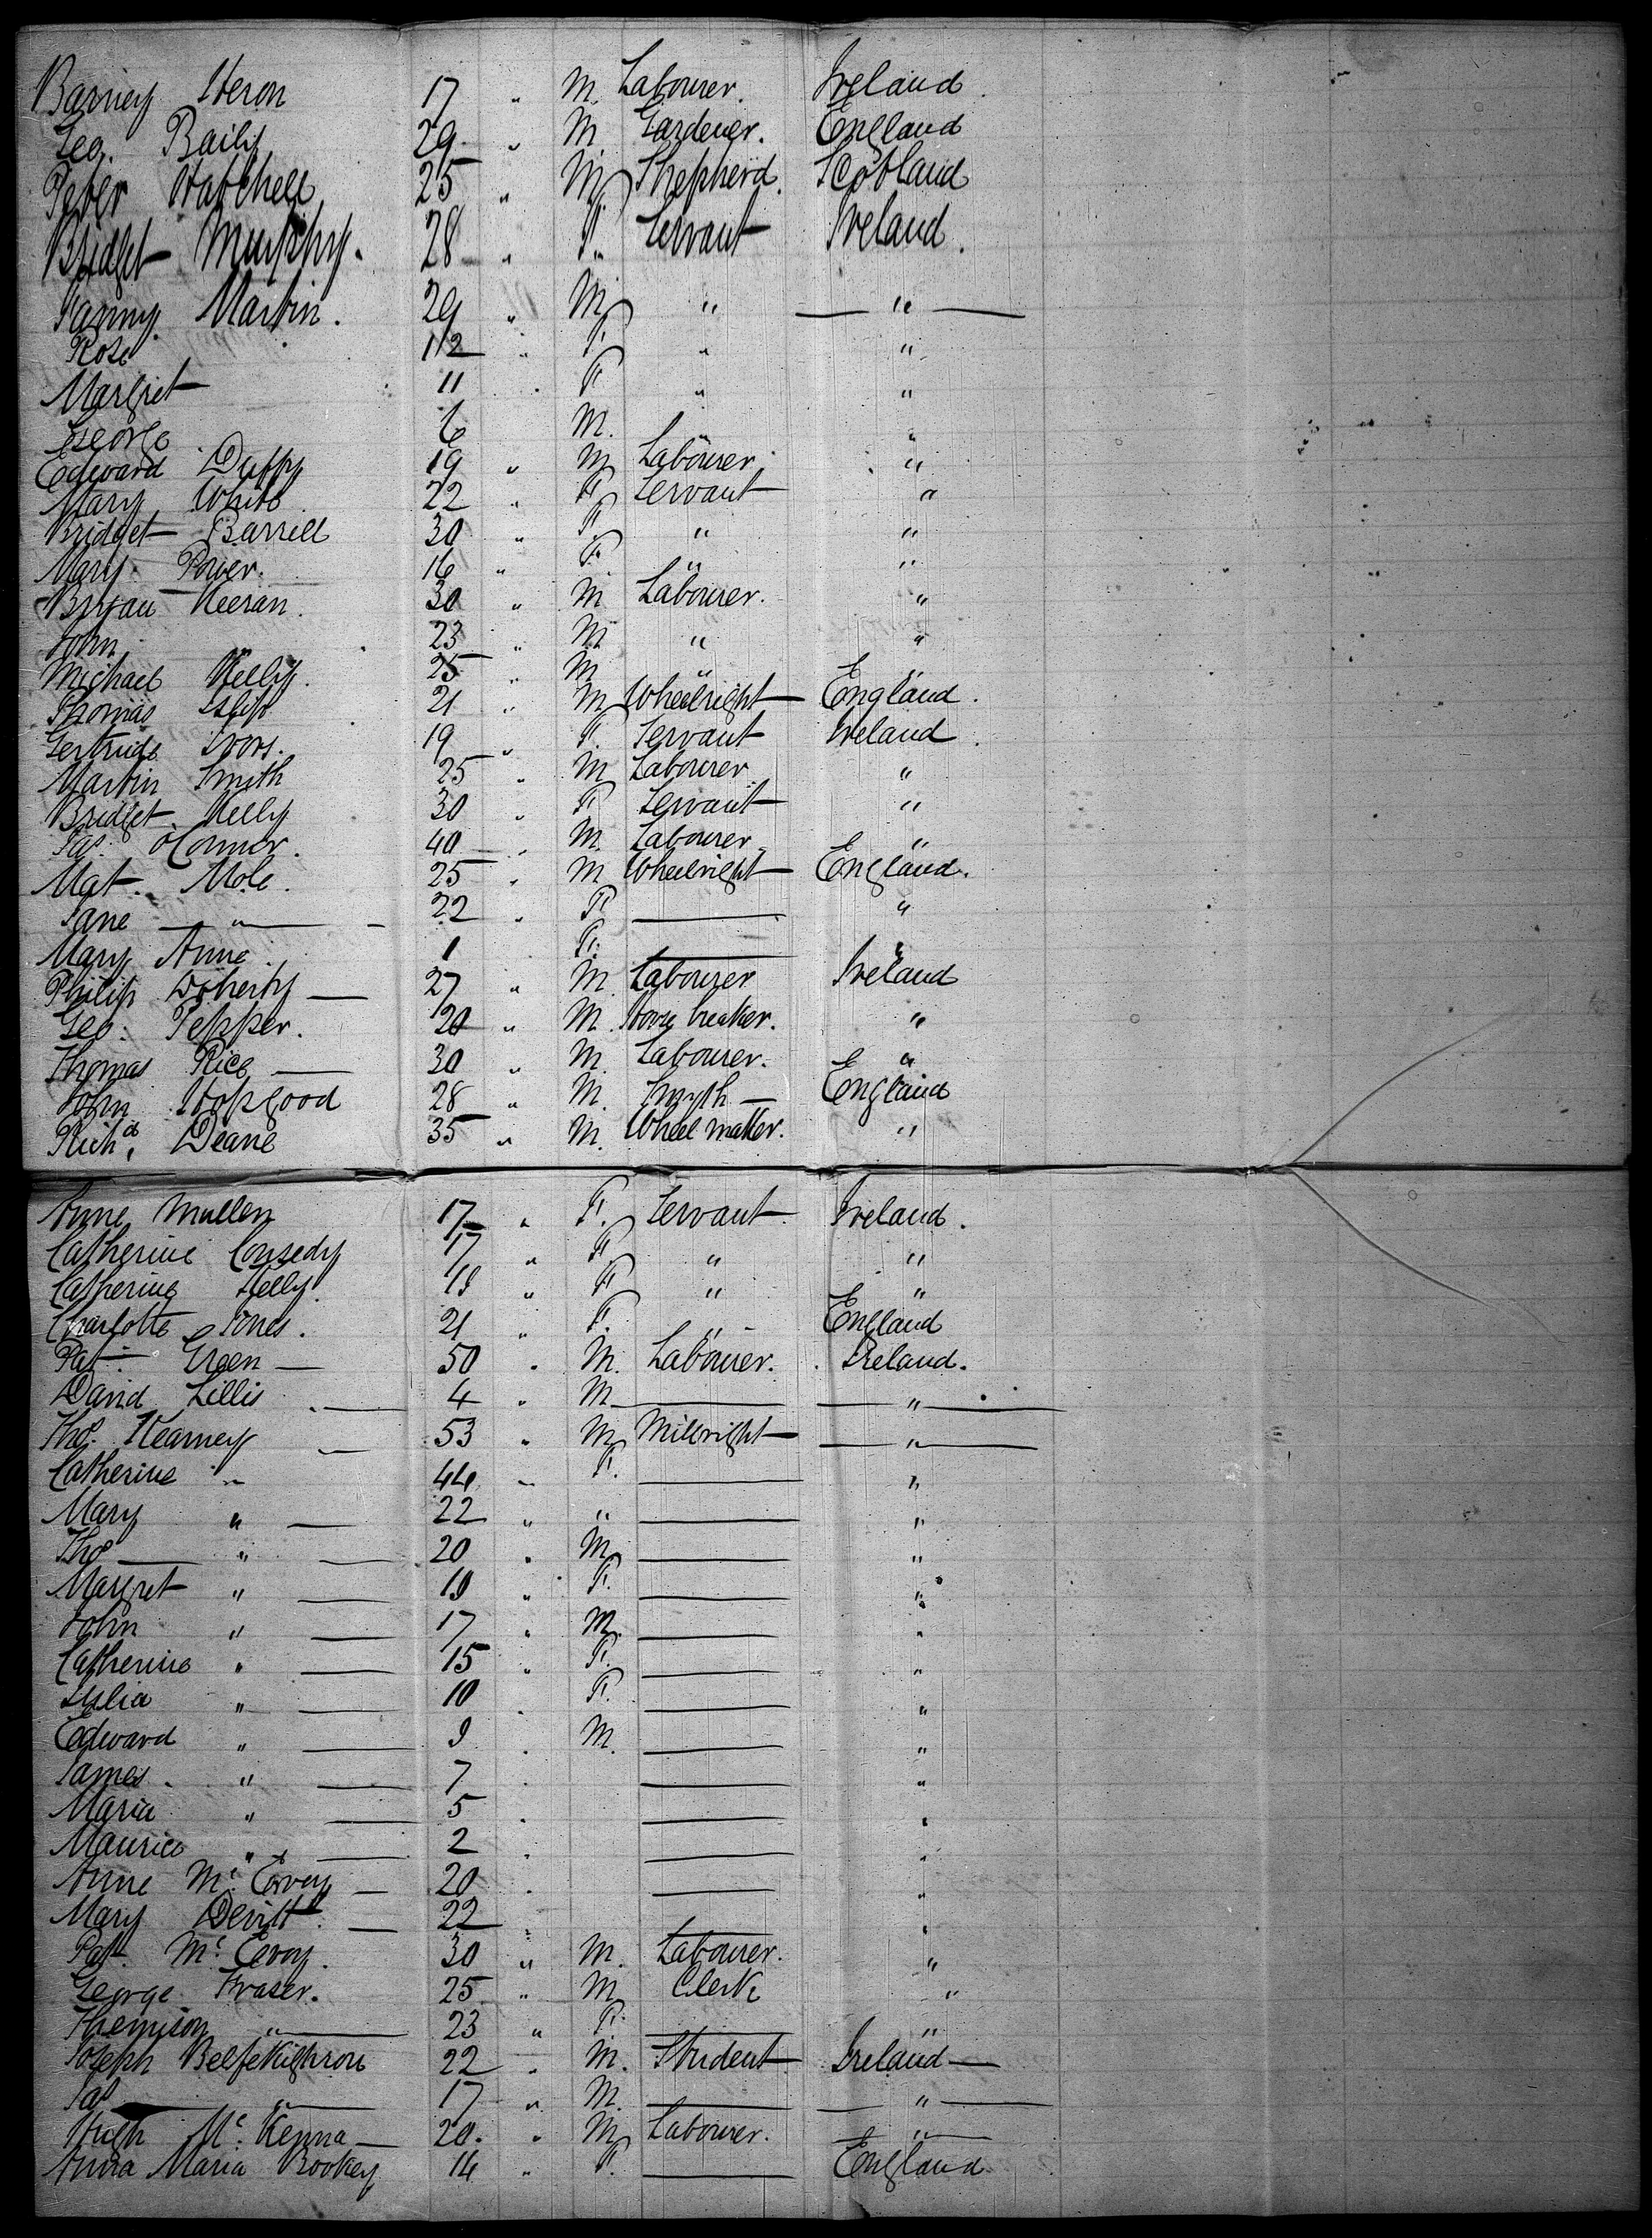 Barney Heron 17 " M. Labourer. Ireland.
Geo. Baily 29 " M. Gardener. England
Peter Watchell 25 " M Shepherd. Scotland
Bridget Murphy. 28 " F. Servant Ireland.
Fanny Martin. 29 " M " — " —
Rose 1 1/2 " F " "
Margret 11 " F " "
George 6 M. " "
Edward Duffy 19 " M Labourer. "
Mary White 22 " F Servant "
Bridget Barrell 30 " F. " "
Mary Power. 16 " F. " "
Bryan Keeran. 30 " M Labourer. "
John 23 " M " "
Michael Kelly. 25 " M. " "
Thomas 21 " M Wheelright England.
Gertrude Ivors. 19 " F. Servant Ireland.
Martin Smith 25 " M Labourer "
Bridget Kelly 30 " F Servant "
Jas. O'Connor. 40 " M. Labourer "
Mat. Mole. 25 " M Wheelright England.
Jane — " — 22 " F — "
Mary Anne 1 F. — "
Philip Doherty — 27 " M Labourer Ireland
Geo. Pepper. 20 " M. Horse breaker. "
Thomas Rice — 30 " M. Labourer. "
John Hopgood 28 " M. Smyth — England
Richd. Deane 35 " M. Wheel maker. "
Anne Mullen 17 " F. Servant Ireland.
Catherine Consedy 17 " F " "
Catherine Kelly. 19 " F " "
Charlotte Jones. 21 " F. " England
Pat. Green — 50 " M. Labourer. Ireland.
David Lillis — 4 " M — — " —
Thos. Kearney — 53 " M Millright — " —
Catherine " 44 " F. — "
Mary " — 22 " " — "
Thos — " — 20 " M — "
Margret " — 19 " F. — "
John " — 17 " M. — "
Catherine " — 15 " F. — "
Julia " — 10 F. — "
Edward " — 9 . M. — "
James. " — 7 . — "
Maria " — 5 . — "
Maurice " — 2 . — "
Anne Mc. Evoy — 20 . — "
Mary Devitt. — 22 " — "
Pat. Mc. Evoy. 30 " M. Labourer. "
George Fraser. 25 " M Clerk "
" — 23 " F. — "
Joseph 22 " M. Student — Ireland —
Jas — " — 17 " M. — — " —
Hugh Mc. Kenna — 20. " M Labourer. — " —
Anna Maria Bookey 14 " F. — England